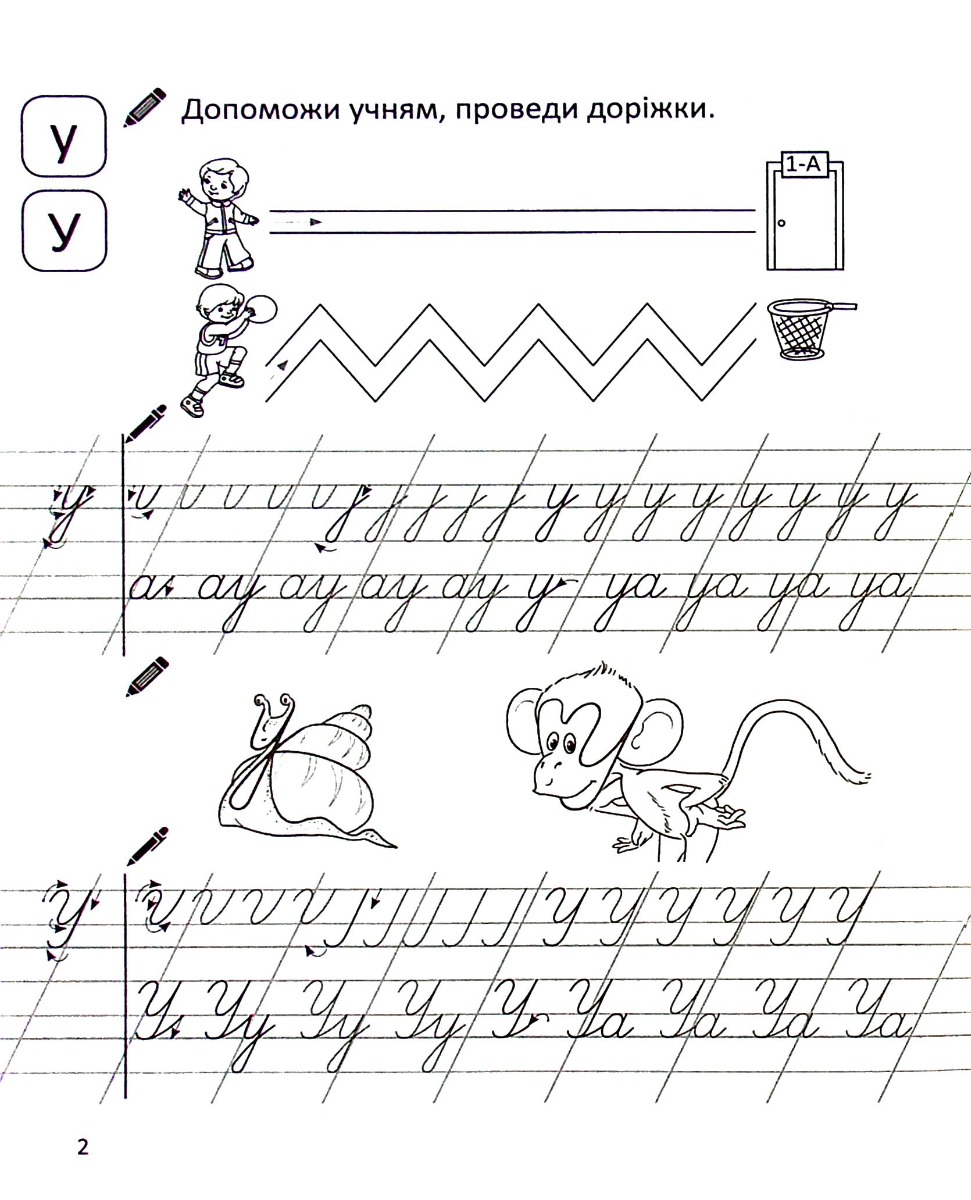 у
Допоможи учням, проведи доріжки.
1-А
У
у у у у у у у у у
а ау ау ау ау у уа уа уа уа
У У У У У У У
У Уу Уу Уу У Уа Уа Уа Уа
2